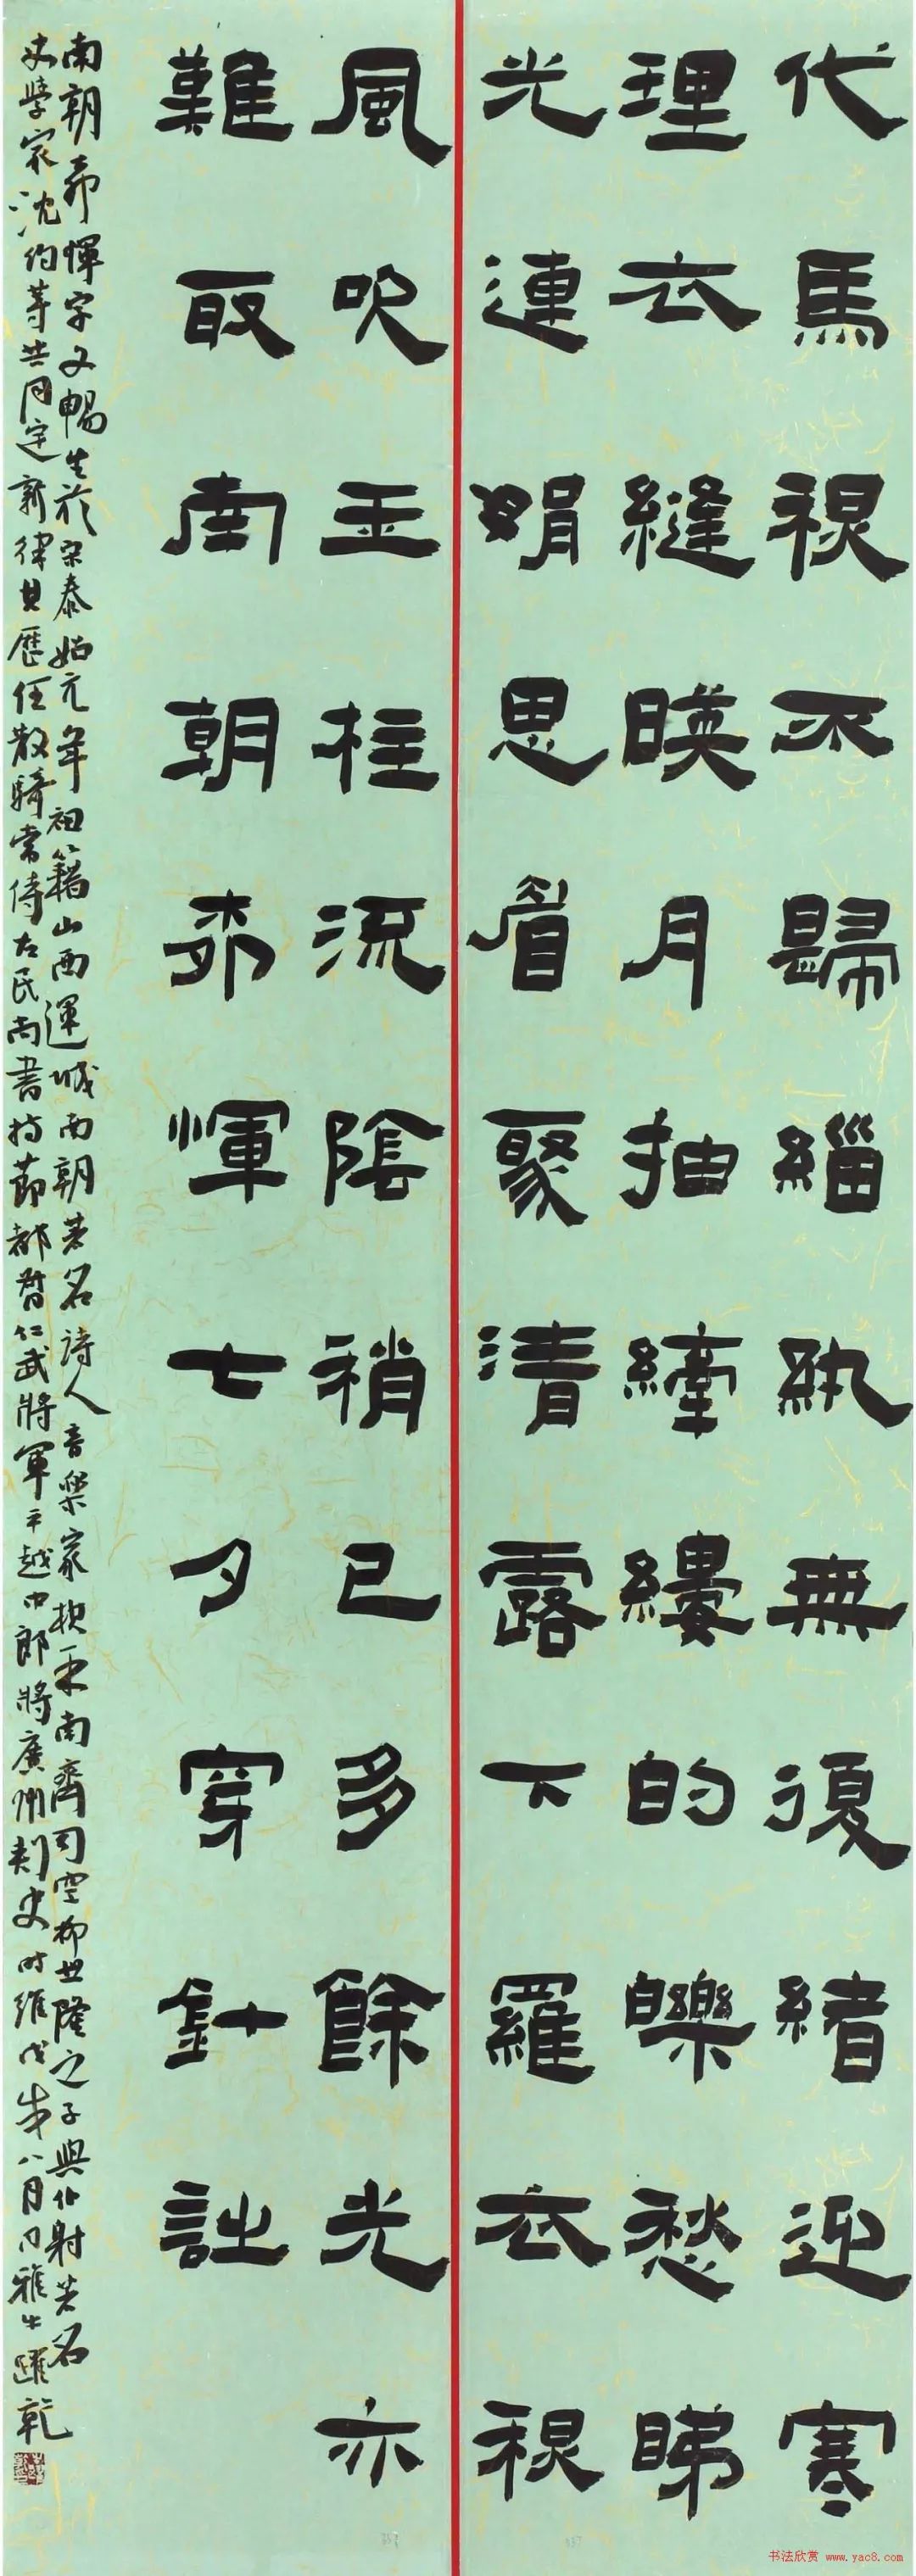 代馬秋不歸緇紈無復緒迎寒
理衣縫暎月抽縴縷的皪愁睇
光連娟思眉聚清露下羅衣秋
風吹玉柱流陰稍已多餘光亦
難取南朝柳惲七夕穿針詩
南朝柳惲字文暢生於宋泰始元年祖籍山西運城南朝著名詩人音樂家棋手南齊司空柳世隆之子與僕射著名
史學家沈約等共同定新律其歷任散騎常侍左民尚書持節都督仁武將軍平越中郎將廣州刺史時維戊戌八月同雅生躍乾
书法欣赏 www.yac8.com